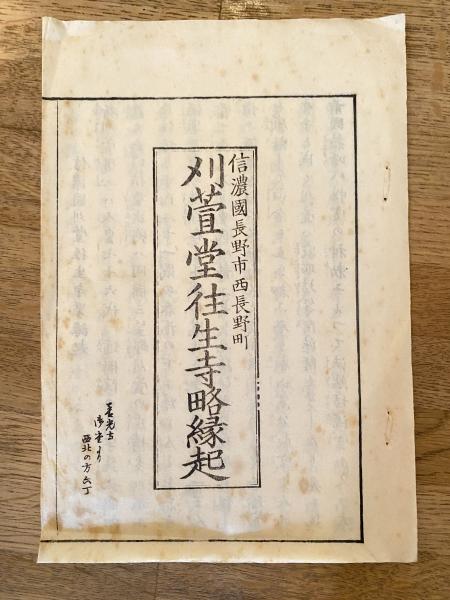 信濃國長野市西長野町
刈萱堂往生寺略縁起
善光寺
御堂より
西北の方六丁